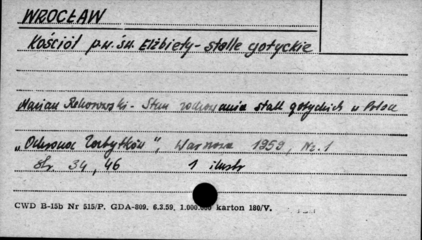 WROCŁAW
Kościół p.w. św. Elżbiety - stalle gotyckie
Marian Rehorowski - Stan zachowania stall gotyckich w Polsce
"Ochrona Zabytków", Warszawa 1959, Nr. 1
str. 34, 46 1 ilustr
CWD B-15b Nr 515/P. GDA-809. 6.3.59. 1.000.000 karton 180/V.